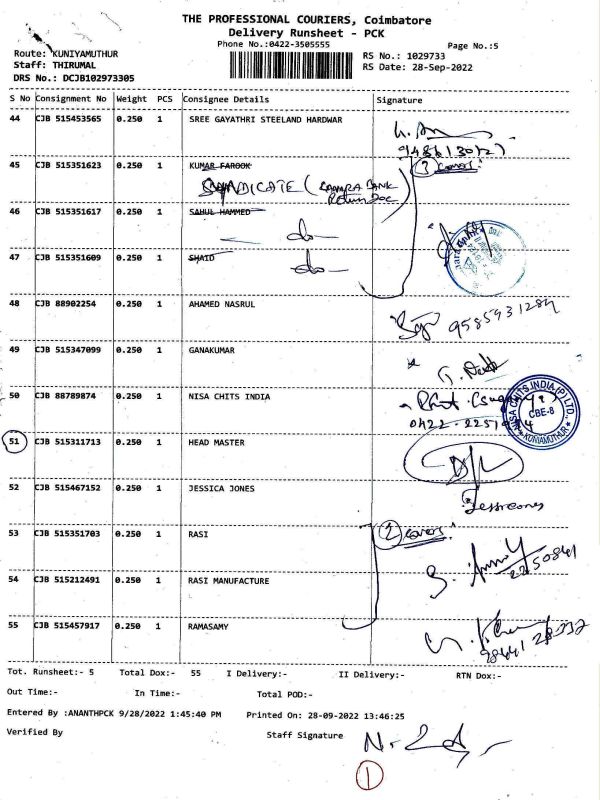 THE PROFESSIONAL COURIERS, Coimbatore
Delivery Runsheet - PCK
Phone No.:0422-3505555
Page No.:5
Route: KUNIYAMUTHUR
RS No.: 1029733
Staff: THIRUMAL
RS Date: 28-Sep-2022
DRS No.: DCJB102973305
S No Consignment No Weight PCS Consignee Details Signature
44 CJB 515453565 0.250 1 SREE GAYATHRI STEELAND HARDWAR
45 CJB 515351623 0.250 1 KUMAR FAROOK
3 covers
SYNDICATE (CANARA BANK
46 CJB 515351617 0.250 1 SAHUL HAMMED
do
47 CJB 515351609 0.250 1 SHAID
do
48 CJB 88902254 0.250 1 AHAMED NASRUL
9585931284
49 CJB 515347099 0.250 1 GANAKUMAR
50 CJB 88789874 0.250 1 NISA CHITS INDIA
NISA CHITS INDIA (P) LTD.
CBE-8
KUNIAMUTHUR
51 CJB 515311713 0.250 1 HEAD MASTER
52 CJB 515467152 0.250 1 JESSICA JONES
53 CJB 515351703 0.250 1 RASI
2 covers
2250841
54 CJB 515212491 0.250 1 RASI MANUFACTURE
55 CJB 515457917 0.250 1 RAMASAMY
Tot. Runsheet:- 5 Total Dox:- 55 I Delivery:- II Delivery:- RTN Dox:-
Out Time:- In Time:- Total POD:-
Entered By :ANANTHPCK 9/28/2022 1:45:40 PM Printed On: 28-09-2022 13:46:25
Verified By Staff Signature
1